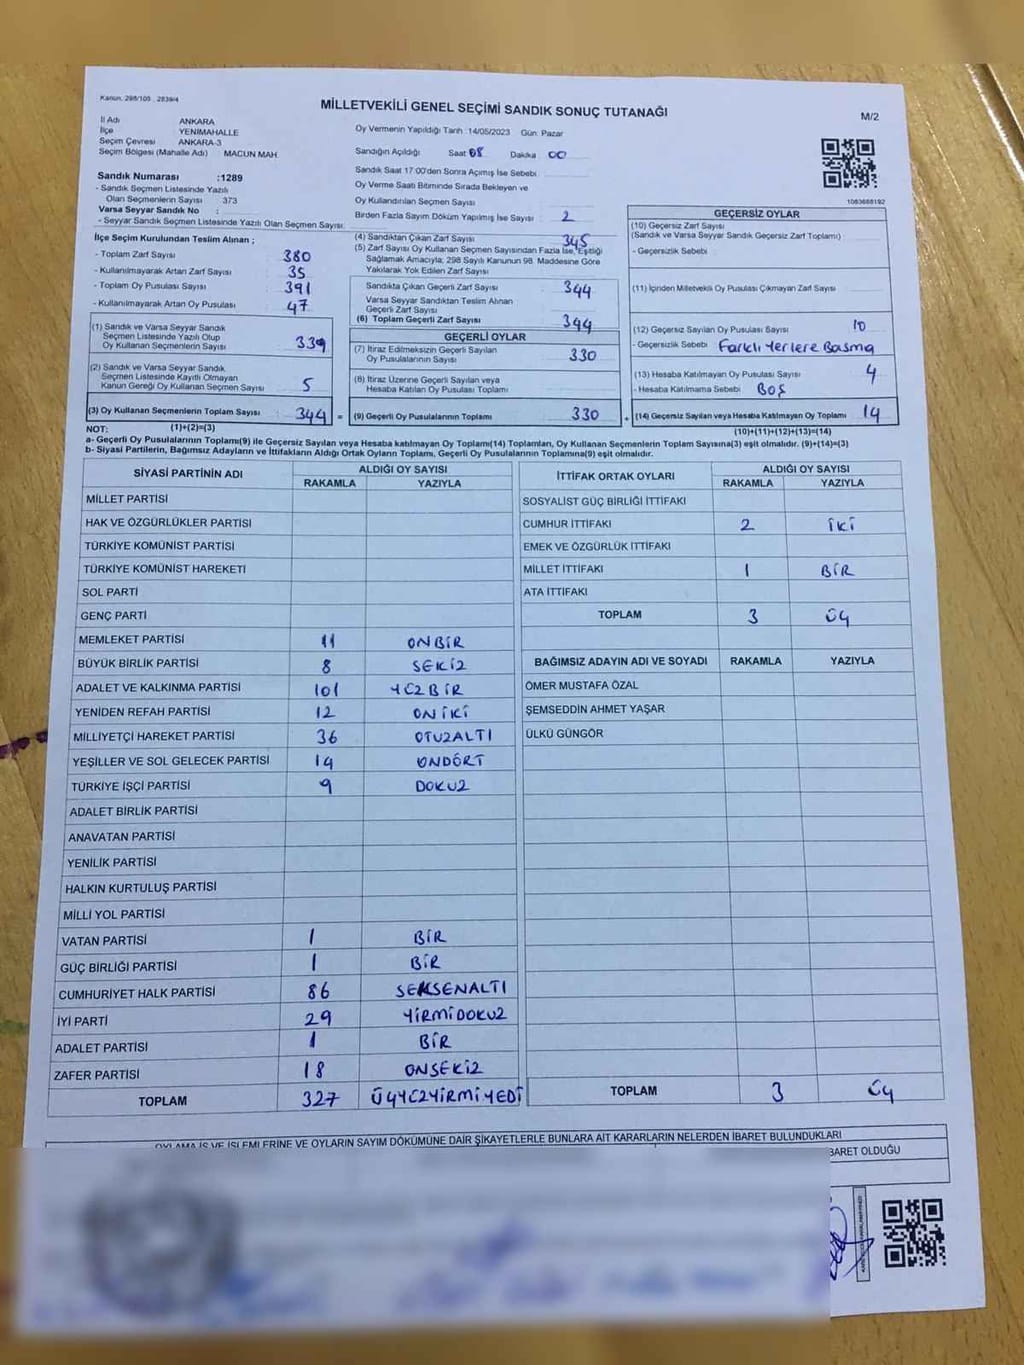 Kanun, 298/105 , 2839/4
MİLLETVEKİLİ GENEL SEÇİMİ SANDIK SONUÇ TUTANAĞI
M/2
İl Adı ANKARA
İlçe YENİMAHALLE
Seçim Çevresi ANKARA-3
Seçim Bölgesi (Mahalle Adı) MACUN MAH.
Sandık Numarası :1289
- Sandık Seçmen Listesinde Yazılı
Olan Seçmenlerin Sayısı 373
Varsa Seyyar Sandık No :
- Seyyar Sandık Seçmen Listesinde Yazılı Olan Seçmen Sayısı:
Oy Vermenin Yapıldığı Tarih :14/05/2023 Gün: Pazar
Sandığın Açıldığı Saat 08 Dakika 00
Sandık Saat 17:00'den Sonra Açımış İse Sebebi
Oy Verme Saati Bitiminde Sırada Bekleyen ve
Oy Kullandırılan Seçmen Sayısı
Birden Fazla Sayım Döküm Yapılmış İse Sayısı 2
1083668192
İlçe Seçim Kurulundan Teslim Alınan ;
- Toplam Zarf Sayısı 380
- Kullanılmayarak Artan Zarf Sayısı 35
- Toplam Oy Pusulası Sayısı 391
- Kullanılmayarak Artan Oy Pusulası 47
(1) Sandık ve Varsa Seyyar Sandık
Seçmen Listesinde Yazılı Olup
Oy Kullanan Seçmenlerin Sayısı 339
(2) Sandık ve Varsa Seyyar Sandık
Seçmen Listesinde Kayıtlı Olmayan
Kanun Gereği Oy Kullanan Seçmen Sayısı 5
(3) Oy Kullanan Seçmenlerin Toplam Sayısı 344 =
(1)+(2)=(3)
(4) Sandıktan Çıkan Zarf Sayısı 345
(5) Zarf Sayısı Oy Kullanan Seçmen Sayısından Fazla İse, Eşitliği
Sağlamak Amacıyla; 298 Sayılı Kanunun 98. Maddesine Göre
Yakılarak Yok Edilen Zarf Sayısı
Sandıkta Çıkan Geçerli Zarf Sayısı 344
Varsa Seyyar Sandıktan Teslim Alınan
Geçerli Zarf Sayısı
(6) Toplam Geçerli Zarf Sayısı 344
GEÇERLİ OYLAR
(7) İtiraz Edilmeksizin Geçerli Sayılan
Oy Pusulalarının Sayısı 330
(8) İtiraz Üzerine Geçerli Sayılan veya
Hesaba Katılan Oy Pusulası Toplamı
(9) Geçerli Oy Pusulalarının Toplamı 330 +
GEÇERSİZ OYLAR
(10) Geçersiz Zarf Sayısı
(Sandık ve Varsa Seyyar Sandık Geçersiz Zarf Toplamı)
- Geçersizlik Sebebi
(11) İçinden Milletvekili Oy Pusulası Çıkmayan Zarf Sayısı
(12) Geçersiz Sayılan Oy Pusulası Sayısı 10
- Geçersizlik Sebebi Farklı Yerlere Basma
(13) Hesaba Katılmayan Oy Pusulası Sayısı 4
- Hesaba Katılmama Sebebi BOŞ
(14) Geçersiz Sayılan veya Hesaba Katılmayan Oy Toplamı 14
(10)+(11)+(12)+(13)=(14)
NOT:
a- Geçerli Oy Pusulalarının Toplamı(9) ile Geçersiz Sayılan veya Hesaba katılmayan Oy Toplamı(14) Toplamları, Oy Kullanan Seçmenlerin Toplam Sayısına(3) eşit olmalıdır. (9)+(14)=(3)
b- Siyasi Partilerin, Bağımsız Adayların ve İttifakların Aldığı Ortak Oyların Toplamı, Geçerli Oy Pusulalarının Toplamına(9) eşit olmalıdır.
SİYASİ PARTİNİN ADI ALDIĞI OY SAYISI
RAKAMLA YAZIYLA
MİLLET PARTİSİ
HAK VE ÖZGÜRLÜKLER PARTİSİ
TÜRKİYE KOMÜNİST PARTİSİ
TÜRKİYE KOMÜNİST HAREKETİ
SOL PARTİ
GENÇ PARTİ
MEMLEKET PARTİSİ 11 ONBİR
BÜYÜK BİRLİK PARTİSİ 8 SEKİZ
ADALET VE KALKINMA PARTİSİ 101 YÜZBİR
YENİDEN REFAH PARTİSİ 12 ONİKİ
MİLLİYETÇİ HAREKET PARTİSİ 36 OTUZALTI
YEŞİLLER VE SOL GELECEK PARTİSİ 14 ONDÖRT
TÜRKİYE İŞÇİ PARTİSİ 9 DOKUZ
ADALET BİRLİK PARTİSİ
ANAVATAN PARTİSİ
YENİLİK PARTİSİ
HALKIN KURTULUŞ PARTİSİ
MİLLİ YOL PARTİSİ
VATAN PARTİSİ 1 BİR
GÜÇ BİRLİĞİ PARTİSİ 1 BİR
CUMHURİYET HALK PARTİSİ 86 SEKSENALTI
İYİ PARTİ 29 YİRMİDOKUZ
ADALET PARTİSİ 1 BİR
ZAFER PARTİSİ 18 ONSEKİZ
TOPLAM 327 ÜÇYÜZYİRMİYEDİ
İTTİFAK ORTAK OYLARI ALDIĞI OY SAYISI
RAKAMLA YAZIYLA
SOSYALİST GÜÇ BİRLİĞİ İTTİFAKI
CUMHUR İTTİFAKI 2 İKİ
EMEK VE ÖZGÜRLÜK İTTİFAKI
MİLLET İTTİFAKI 1 BİR
ATA İTTİFAKI
TOPLAM 3 ÜÇ
BAĞIMSIZ ADAYIN ADI VE SOYADI RAKAMLA YAZIYLA
ÖMER MUSTAFA ÖZAL
ŞEMSEDDİN AHMET YAŞAR
ÜLKÜ GÜNGÖR
TOPLAM 3 ÜÇ
OYLAMA İŞ VE İŞLEMLERİNE VE OYLARIN SAYIM DÖKÜMÜNE DAİR ŞİKAYETLERLE BUNLARA AİT KARARLARIN NELERDEN İBARET BULUNDUKLARI
BARET OLDUĞU